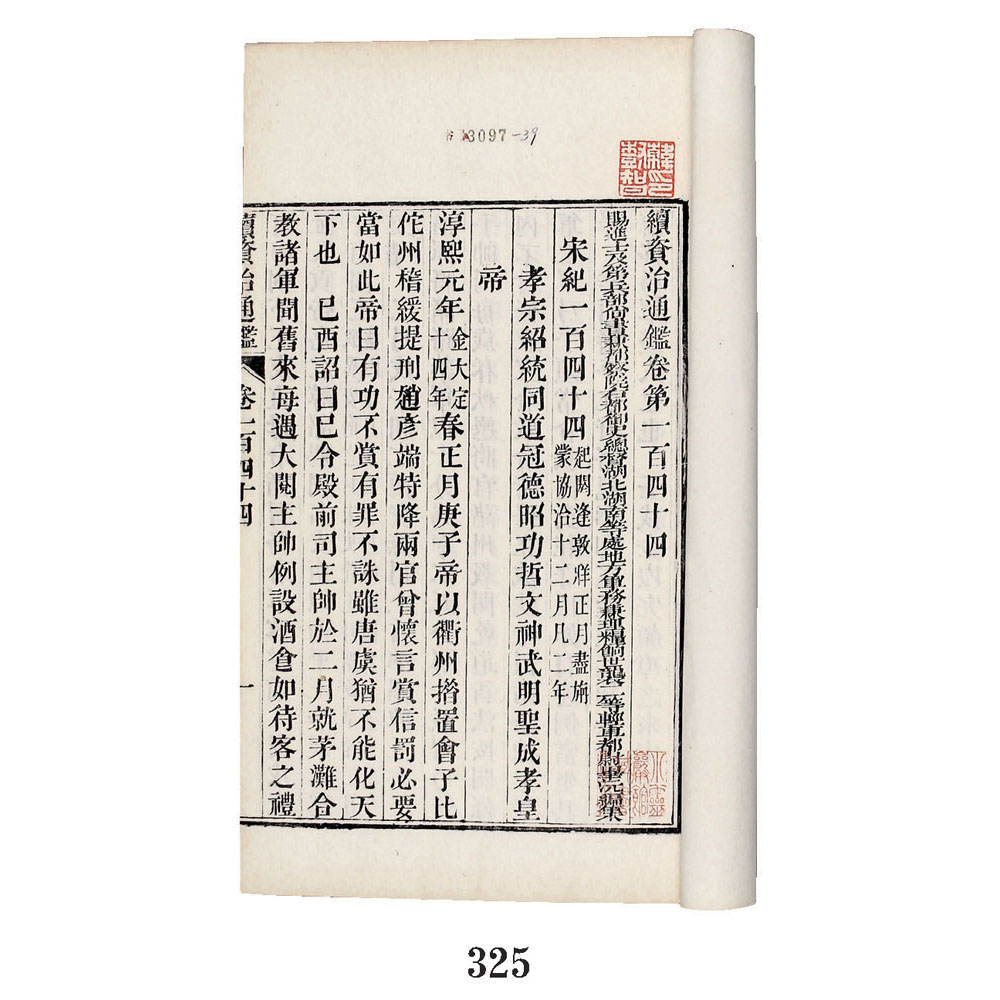 13097-39
續資治通鑑卷第一百四十四
賜進士及第兵部尚書兼都察院右都御史總督湖北湖南等處地方軍務兼理糧餉世襲二等輕車都尉畢沅編集
宋紀一百四十四 起閼逢敦牂正月盡旃
蒙協洽十二月凡二年
孝宗紹統同道冠德昭功哲文神武明聖成孝皇
帝
淳熙元年 金大定
十四年 春正月庚子帝以衢州措置會子比
佗州稽緩提刑趙彥端特降兩官曾懷言賞信罰必要
當如此帝曰有功不賞有罪不誅雖唐虞猶不能化天
下也 巳酉詔曰巳令殿前司主帥於二月就茅灘合
教諸軍聞舊來每遇大閱主帥例設酒食如待客之禮
續資治通鑑 卷一百四十四 一
325